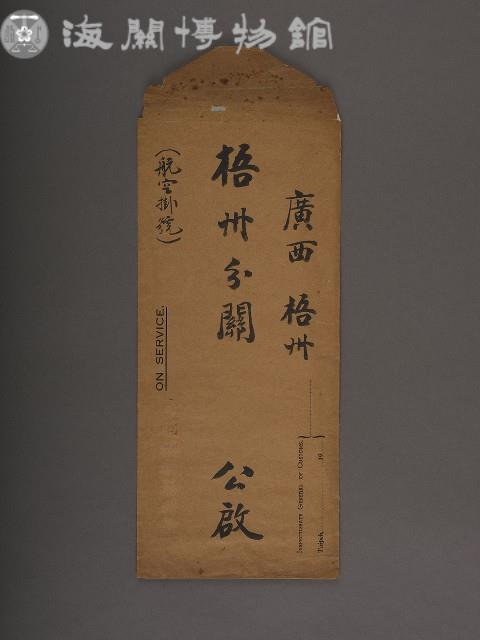 海關博物館
廣西 梧州
梧州分關 公啟
(航空掛號)
ON SERVICE.
INSPECTORATE GENERAL OF CUSTOMS,
Taipeh, 19